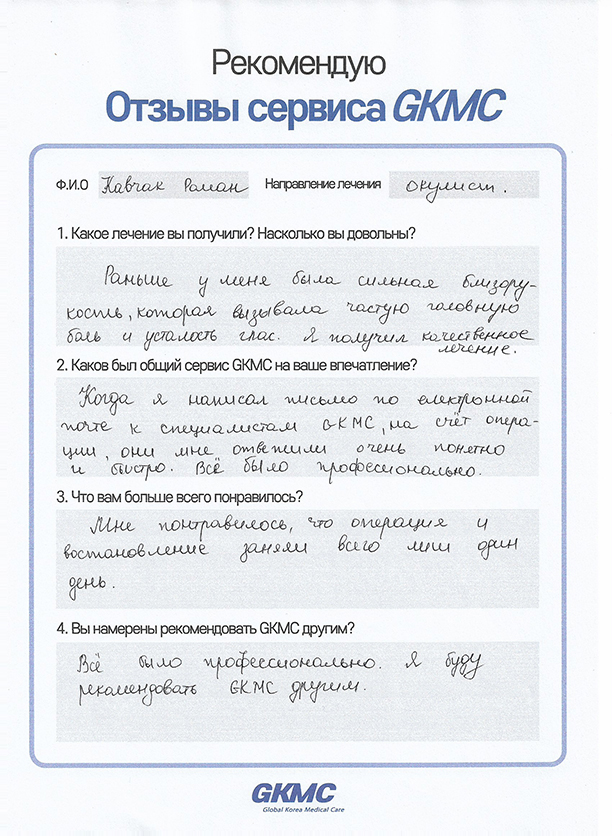 Рекомендую
Отзывы сервиса GKMC
Ф.И.О Кавчак Роман Направление лечения окулист.
1. Какое лечение вы получили? Насколько вы довольны?
Раньше у меня была сильная близору-
кость, которая вызывала частую головную
боль и усталость глас. Я получил качественное
лечение.
2. Каков был общий сервис GKMC на ваше впечатление?
Когда я написал письмо по електронной
почте к специалистам GKMC, на счёт опера-
ции, они мне ответили очень понятно
и быстро. Всё было професионально.
3. Что вам больше всего понравилось?
Мне понтравилось, что операция и
востановление заняли всего лиш один
день.
4. Вы намерены рекомендовать GKMC другим?
Всё было професcионально. Я буду
рекомендовать GKMC другим.
GKMC
Global Korea Medical Care